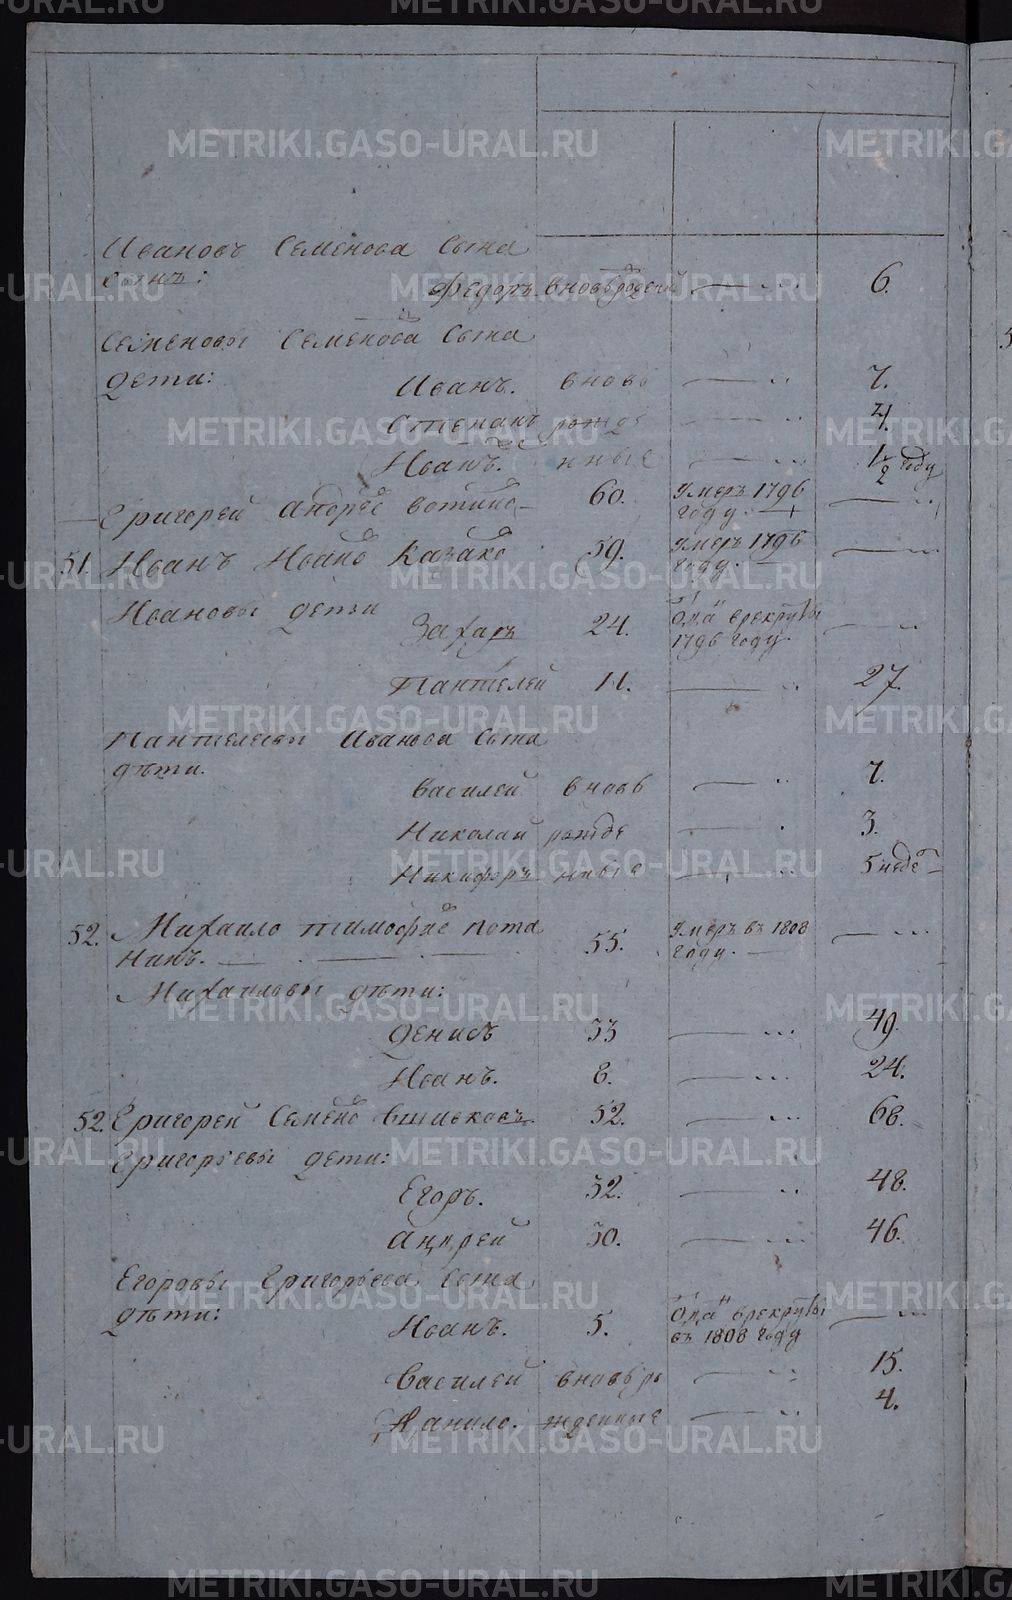 Ивановъ Семенова Сына
Сынъ:
Федоръ вновьрожден 6.
Семеновы Семенова Сына
дети:
Иванъ. вново 7.
Степанъ рожде 4.
Иванъ. нные 1/2 году
Григорей Андрѣе вотино 60. Умеръ 1796
году.
51. Иванъ Ивано Казако 59. Умеръ 1796
году.
Ивановы дети
Захаръ 24. Отда врекруты
1796 году.
Пантелей 11. 27.
Пантелеевы Иванова Сына
дѣти.
Василей вновь 7.
Николай рожде 3.
Никифоръ нные 5 неде
52. Михаило тимофѣе Пота 55. Умеръ въ 1808
нинъ. году.
Михаиловы дѣти:
Денисъ 33 49.
Иванъ. 8. 24.
52. Григорей Семено Вшивковъ 52. 68.
Григорьевы дети:
Егоръ. 32. 48.
Андрей 30. 46.
Егоровы Григорьева Сына
дѣти:
Иванъ. 5. Отда врекруты
въ 1808 году
Василей вновьро 15.
Данило. жденные 4.
METRIKI.GASO-URAL.RU